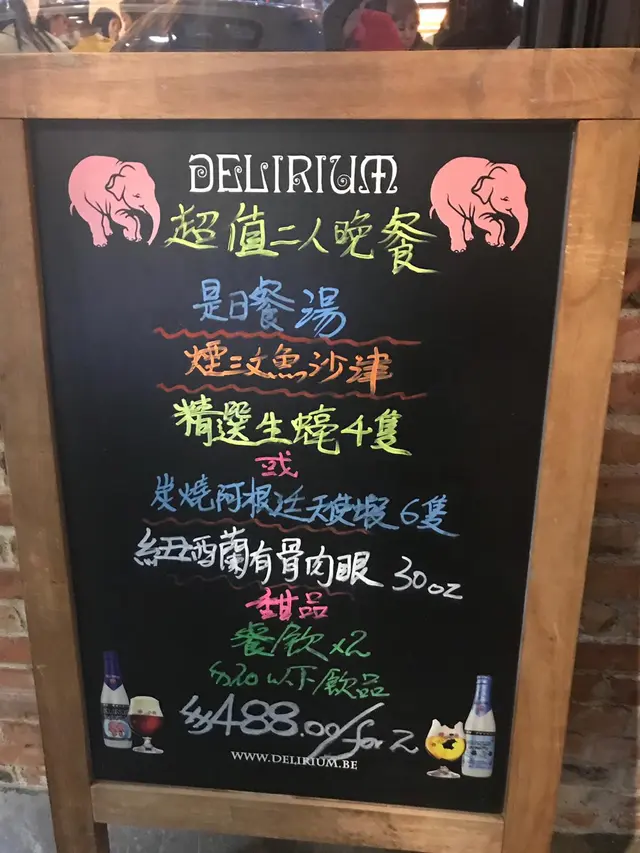 DELIRIUM
超值二人晚餐
是日餐湯
煙三文魚沙津
精選生蠔4隻
或
炭燒阿根廷天使蝦6隻
紐西蘭有骨肉眼 30oz
甜品
餐飲x2
$20以下飲品
$488.00/for 2
WWW.DELIRIUM.BE